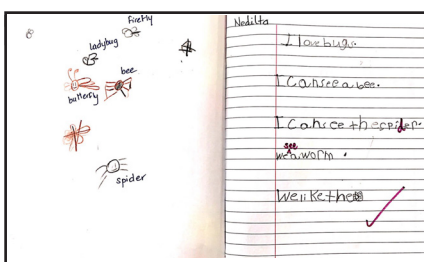 Firefly
ladybug
bee
butterfly
spider
Nedilta
I love bugs.
I can see a bee.
I can see the spider.
see
we a worm.
We like the